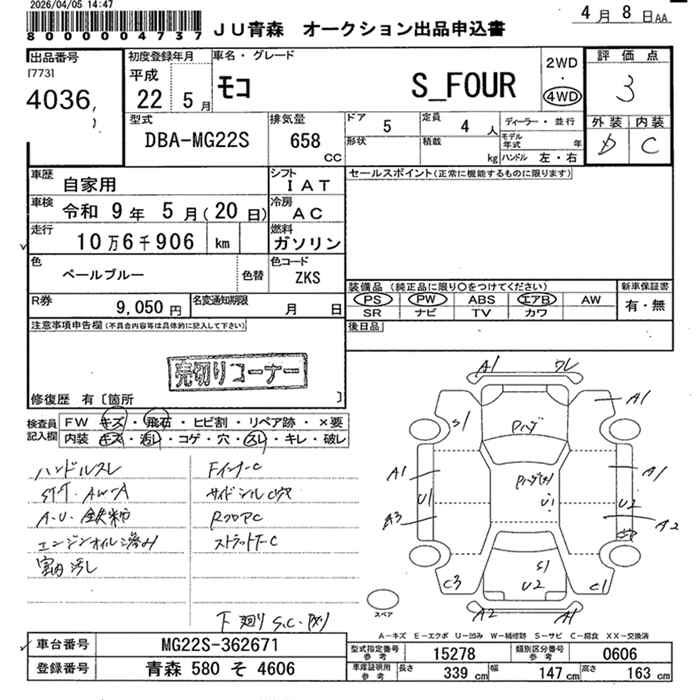 2026/04/05 14:47
8000004737
JU青森 オークション出品申込書
4月 8日AA
出品番号
[773]
4036
初度登録年月
平成
22 5月
車名・グレード
モコ S_FOUR
2WD
・
4WD
評価点
3
型式
DBA-MG22S
排気量
658
CC
ドア
5
定員
4人
形状
積載
kg
ディーラー・並行
モデル年式 年
ハンドル 左・右
外装 内装
D C
車歴
自家用
シフト
IAT
セールスポイント(正常に機能するものに限ります)
車検
令和 9年 5月(20日)
冷房
AC
走行
10万6千906 km
燃料
ガソリン
色
ペールブルー
色替
色コード
ZKS
装備品 (純正品に限り○をつけてください)
PS PW ABS エアB AW
SR ナビ TV カワ
新車保証書
有・無
R券
9,050円
名変通知期限
月 日
後日品
注意事項申告欄(不具合内容等は具体的に記入して下さい)
売切りコーナー
修復歴 有〔箇所 〕
検査員記入欄
FW キズ・飛石・ヒビ割・リペア跡・×要
内装 キズ・汚レ・コゲ・穴・スレ・キレ・破レ
ハンドルスレ
A・U・鉄粉
エンジンオイル滲み
室内汚し
FインナーC
サイドシルC穴
RフロアC
ストラットC
下廻りS.C.
A1 ワレ
A1
S1
A1
U1
A3
A1
U2
A2
U1
S1
U2
C3
C1
A2 A1
スペア
A-キズ E-エクボ U-凹み W-補修跡 S-サビ C-腐食 XX-交換済
車台番号
MG22S-362671
登録番号
青森 580 そ 4606
型式指定番号
参考
15278
類別区分番号
参考
0606
車庫証明用
参考
長さ
339 cm
幅
147 cm
高さ
163 cm